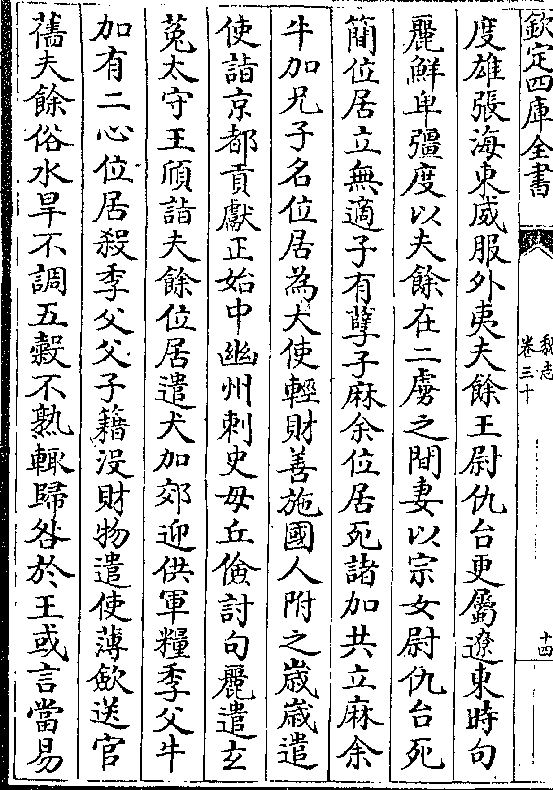 欽定四庫全書
魏志
卷三十
十四
度雄張海東威服外夷夫餘王尉仇台更屬遼東時句
麗鮮卑彊度以夫餘在二虜之間妻以宗女尉仇台死
簡位居立無適子有孽子麻余位居死諸加共立麻余
牛加兄子名位居為犬使輕財善施國人附之歲歲遣
使詣京都貢獻正始中幽州刺史毋丘儉討句麗遣玄
菟太守王頎詣夫餘位居遣犬加郊迎供軍糧季父牛
加有二心位居殺季父父子籍没財物遣使薄斂送官
舊夫餘俗水旱不調五糓不熟輒歸咎於王或言當易